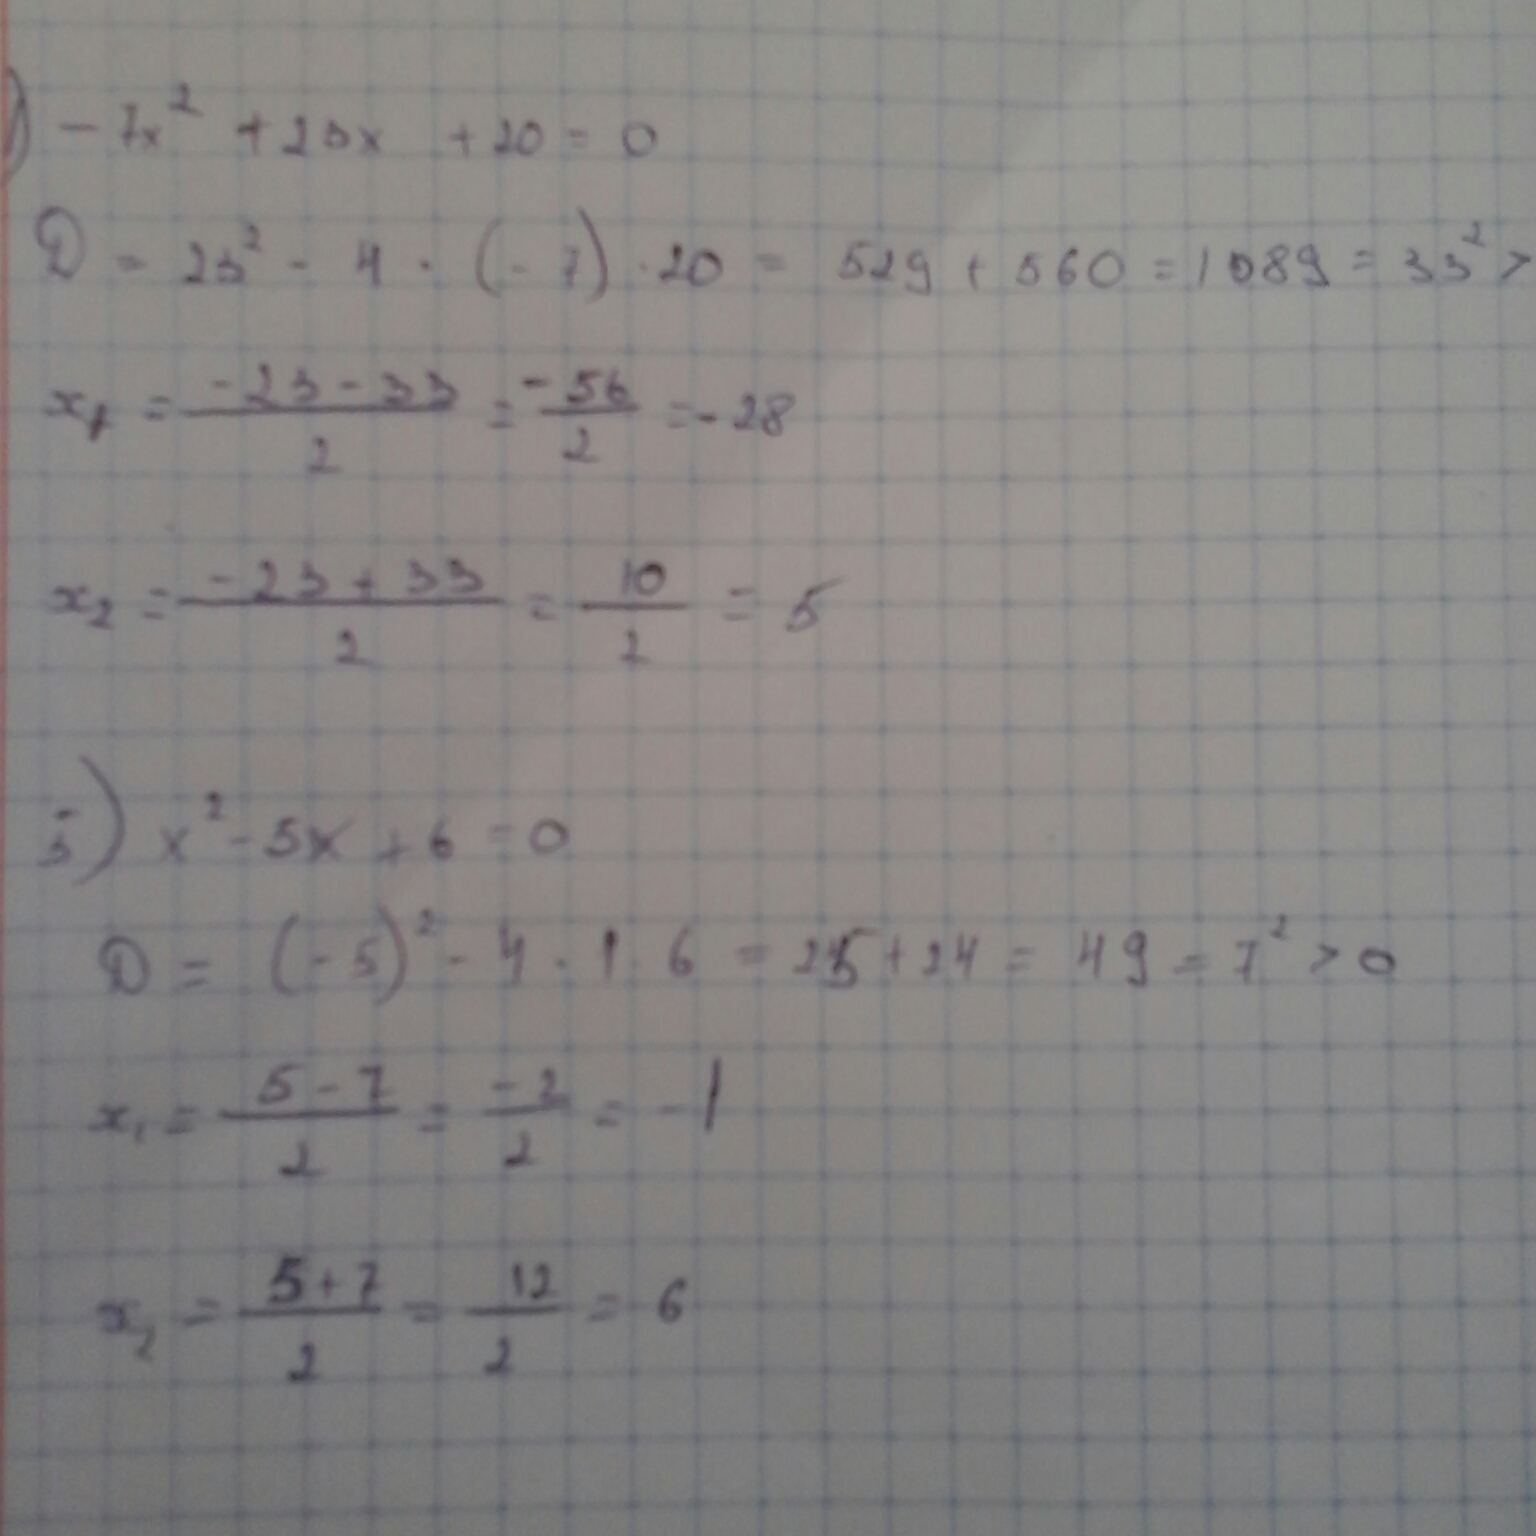 ) -7x² + 23x + 20 = 0
D = 23² - 4 · (-7) · 20 = 529 + 560 = 1089 = 33² >
x₁ = (-23 - 33)/2 = -56/2 = -28
x₂ = (-23 + 33)/2 = 10/2 = 5
5) x² - 5x + 6 = 0
D = (-5)² - 4 · 1 · 6 = 25 + 24 = 49 = 7² > 0
x₁ = (5 - 7)/2 = -2/2 = -1
x₂ = (5 + 7)/2 = 12/2 = 6